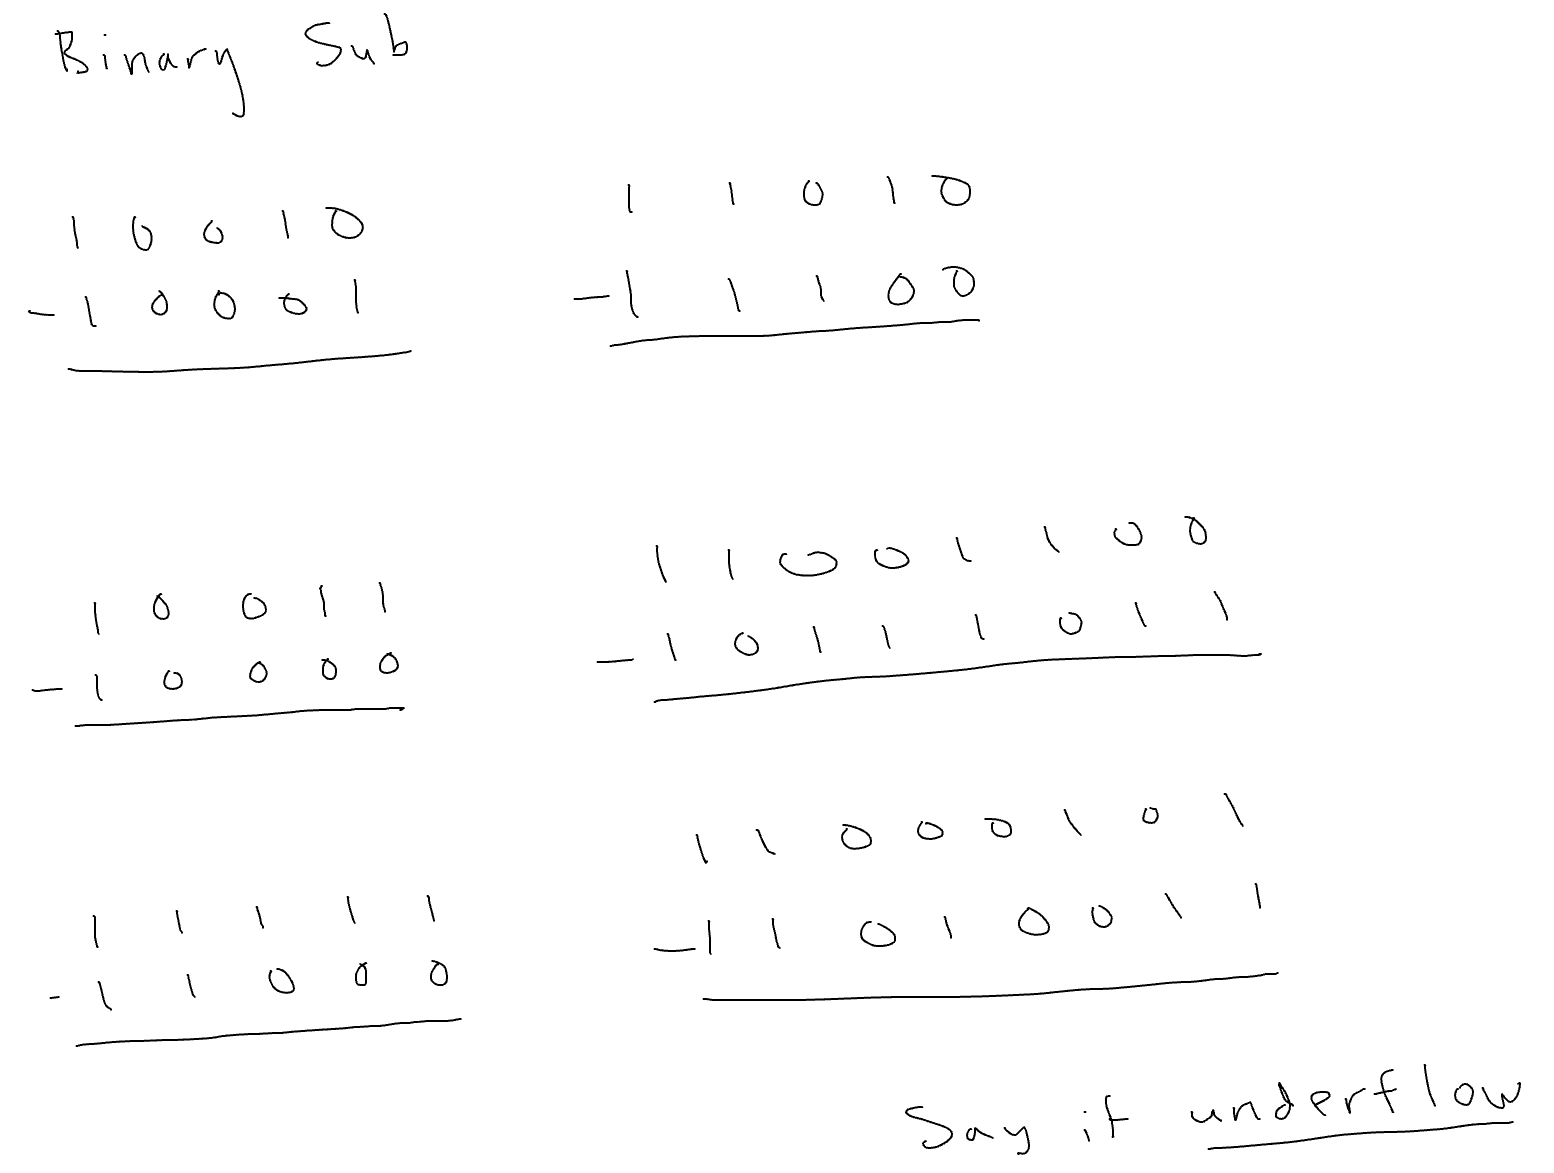 Binary Sub
10010
-10001
11010
-11100
10011
-10000
11001100
-10111011
11111
-11000
11000101
-11010011
Say if underflow